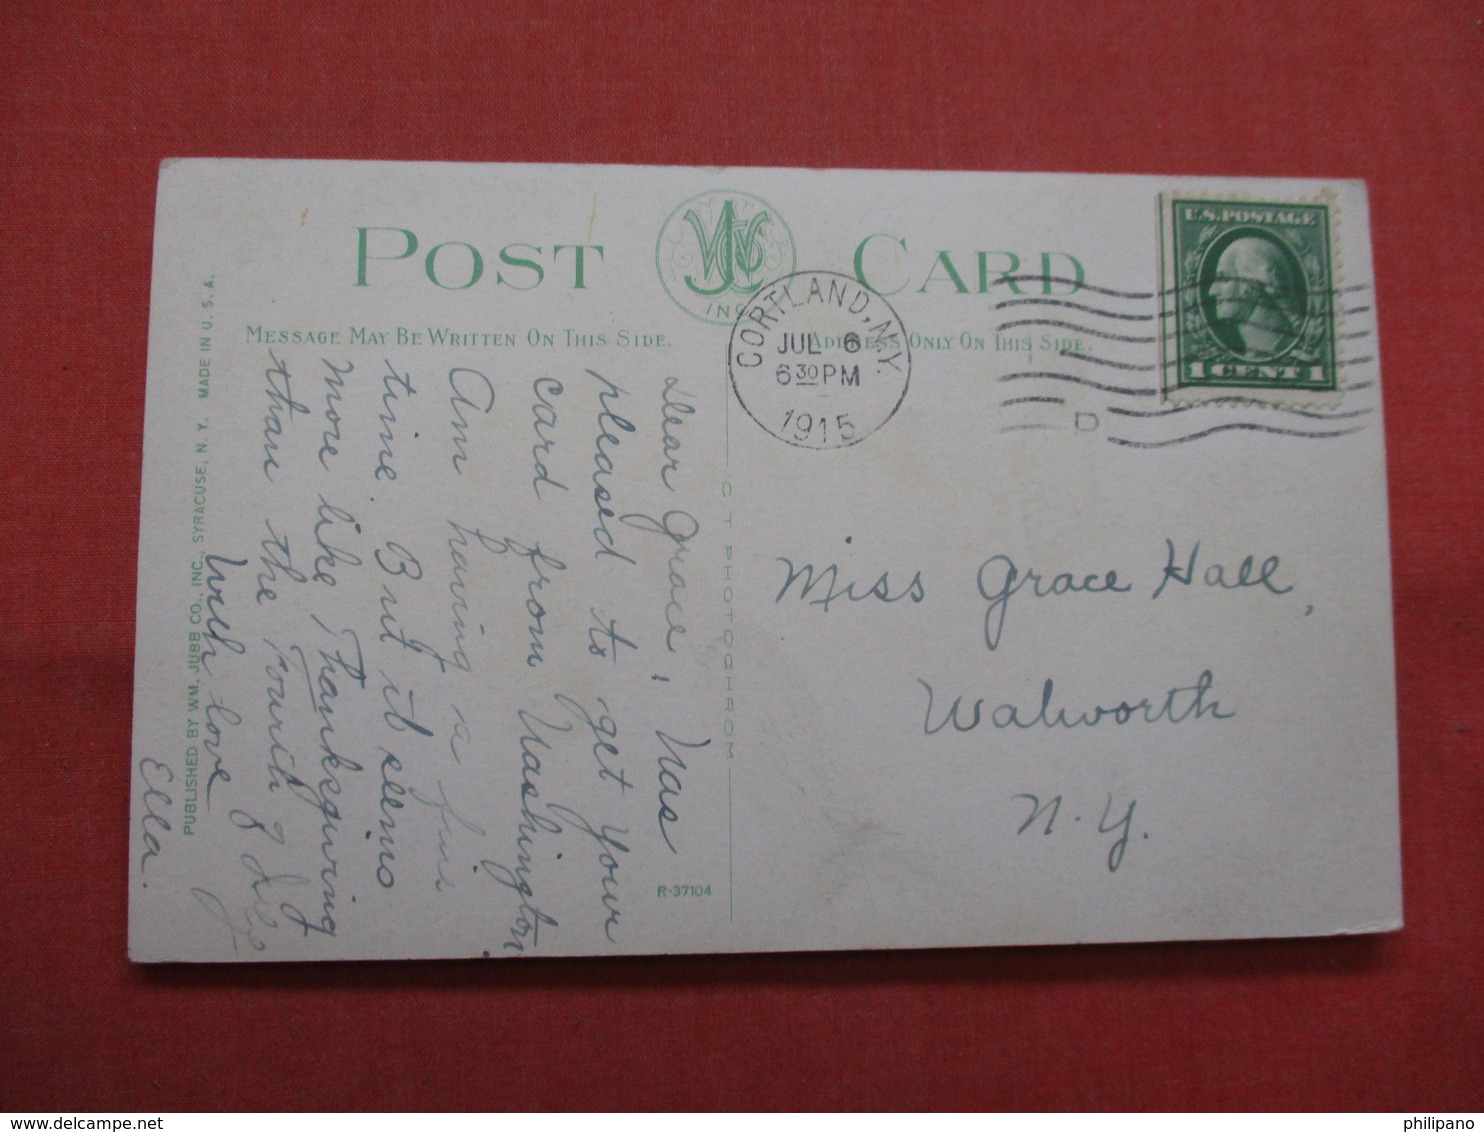 POST CARD
WJCo
INC
MESSAGE MAY BE WRITTEN ON THIS SIDE.
ADDRESS ONLY ON THIS SIDE.
U.S. POSTAGE
1 CENT 1
CORTLAND, N.Y.
JUL 6
6 30 PM
1915
D
Dear Grace, Was
pleased to get your
card from Washington.
Am having a fine
time. But it seems
more like Thanksgiving
than the Fourth of July
With love
Ella.
Miss Grace Hall,
Walworth
N. Y.
C T PHOTOCHROM
R-37104
PUBLISHED BY WM. JUBB CO., INC., SYRACUSE, N. Y. MADE IN U. S. A.
delcampe.net
philipano